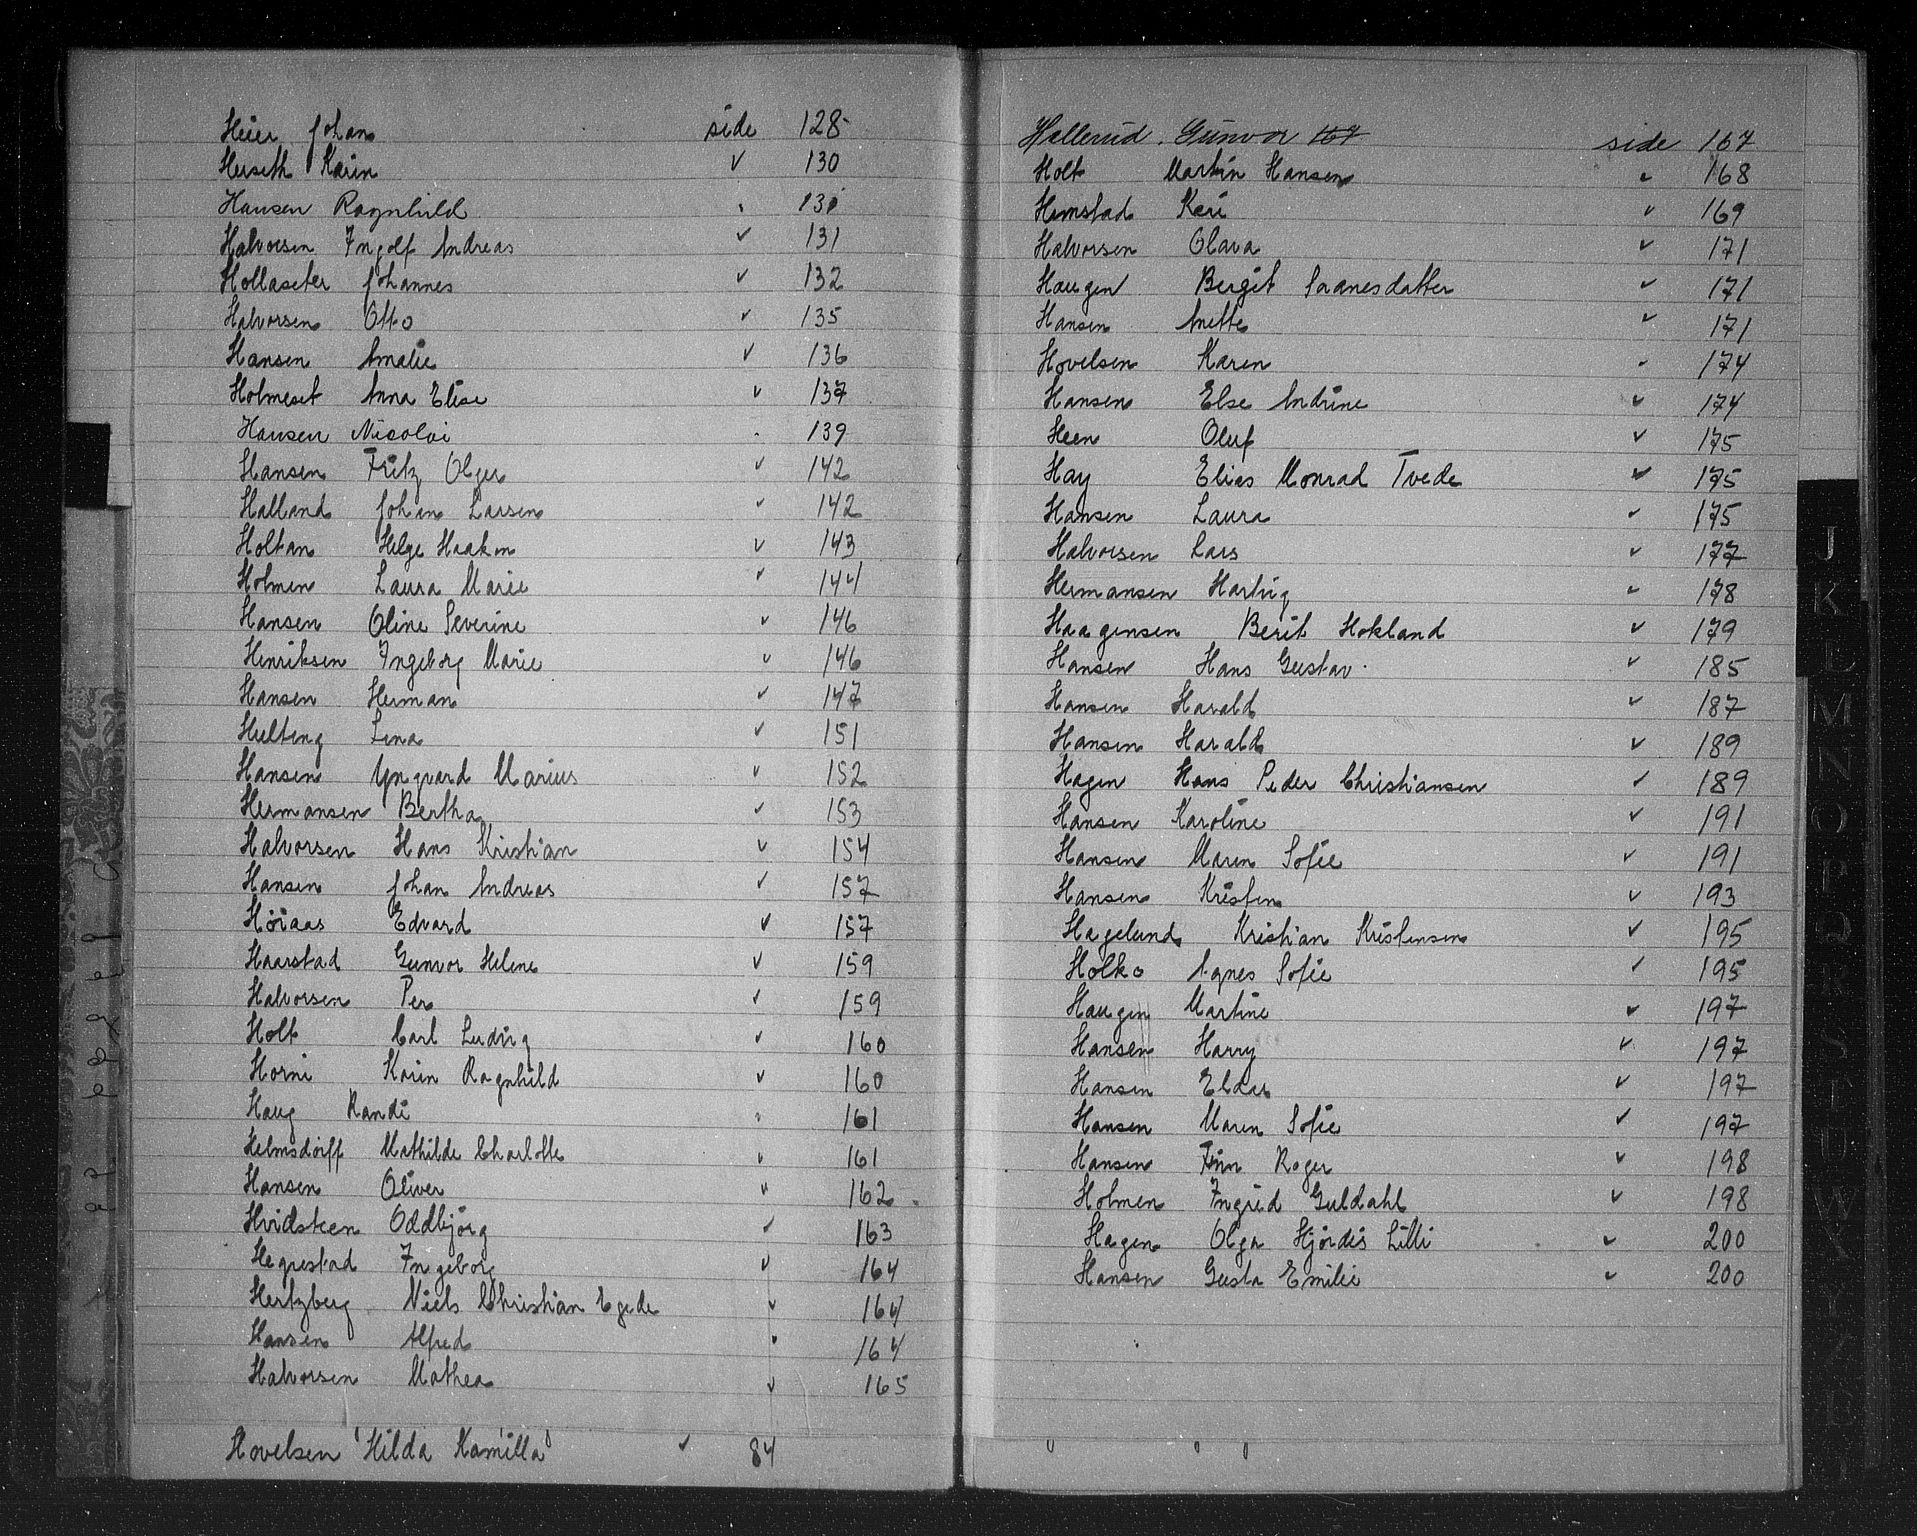 Heier Johan side 128
Herseth Karin ✓ 130
Hansen Ragnhild 131
Halvorsen Ingolf Andreas ✓ 131
Hollaseter Johannes ✓ 132
Halvorsen Otto ✓ 135
Hansen Amalie ✓ 136
Holmeset Anna Elise ✓ 137
Hansen Nicolai 139
Hansen Fritz Olger ✓ 142
Halland Johan Larsen ✓ 142
Holtan Helge Haakon ✓ 143
Holmen Laura Marie ✓ 144
Hansen Oline Severine ✓ 146
Henriksen Ingeborg Marie ✓ 146
Hansen Herman ✓ 147
Hulteng Lena ✓ 151
Hansen Yngvard Marius ✓ 152
Hermansen Bertha ✓ 153
Halvorsen Hans Kristian ✓ 154
Hansen Johan Andreas ✓ 157
Høiaas Edvard ✓ 157
Haarstad Gunvor Helene ✓ 159
Halvorsen Per ✓ 159
Holt Carl Ludvig ✓ 160
Horni Karin Ragnhild ✓ 160
Haug Randi 161
Helmsdorff Mathilde Charlotte ✓ 161
Hansen Oliver ✓ 162
Hvidsteen Oddbjörg ✓ 163
Hegrestad Ingeborg ✓ 164
Hertzberg Niels Christian Egede ✓ 164
Hansen Alfred ✓ 164
Halvorsen Mathea ✓ 165
Hovelsen Hilda Kamilla ✓ 84
Hallerud. Gunvor 167 side 167
Holt Martin Hansen ✓ 168
Hemstad Kari ✓ 169
Halvorsen Olava ✓ 171
Haugen Bergit Svanesdatter ✓ 171
Hansen Anette ✓ 171
Hovelsen Karen 174
Hansen Else Andrine ✓ 174
Heen Oluf ✓ 175
Hay Elias Monrad Tvede ✓ 175
Hansen Laura ✓ 175
Halvorsen Lars ✓ 177
Hermansen Hartvig ✓ 178
Haagensen Berit Hokland ✓ 179
Hansen Hans Gustav ✓ 185
Hansen Harald ✓ 187
Hansen Harald ✓ 189
Hagen Hans Peder Christiansen ✓ 189
Hansen Karoline ✓ 191
Hansen Maren Sofie ✓ 191
Hansen Kristen ✓ 193
Hagelund Kristian Kristensen ✓ 195
Holko Agnes Sofie ✓ 195
Haugen Martine ✓ 197
Hansen Harry ✓ 197
Hansen Eldar ✓ 197
Hansen Maren Sofie ✓ 197
Hansen Finn Roger ✓ 198
Holmen Ingrid Guldahl ✓ 198
Hagen Olga Hjördis Lilli ✓ 200
Hansen Gusta Emilie ✓ 200
J
K
L
M
N
O
P
Q
R
S
T
U
W